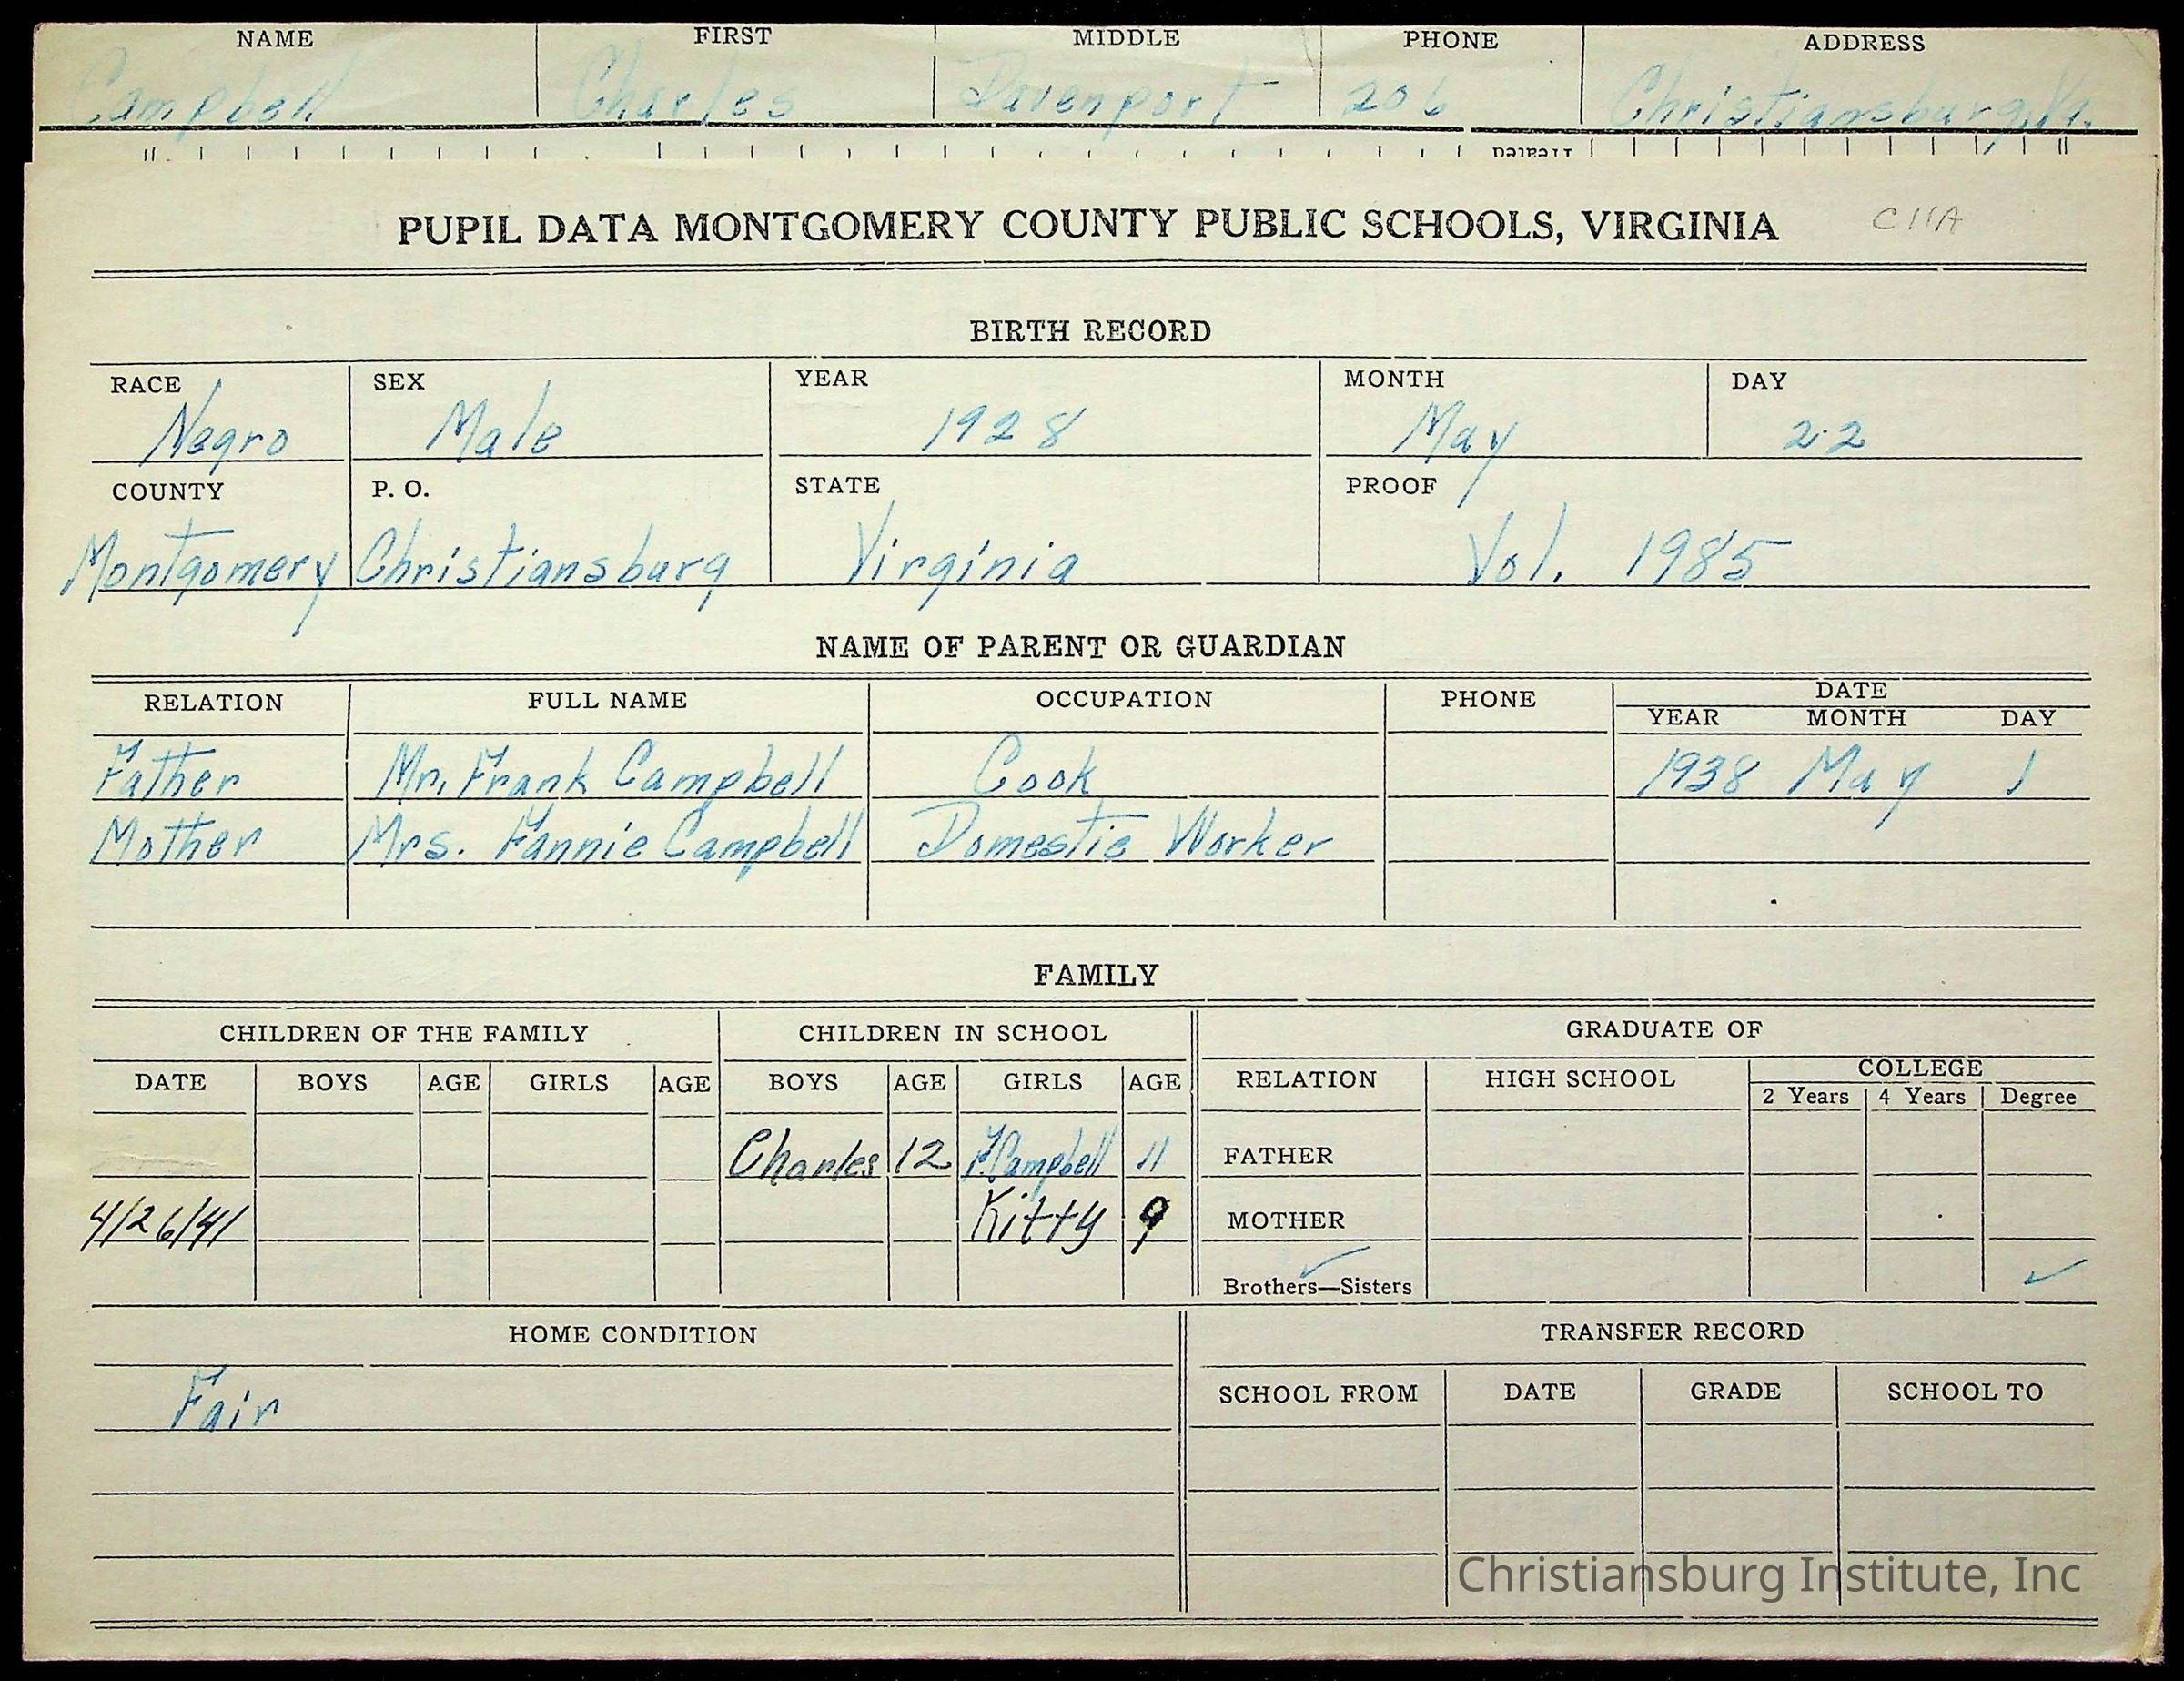 NAME FIRST MIDDLE PHONE ADDRESS
Campbell Charles Davenport 206 Christiansburg, Va.
PUPIL DATA MONTGOMERY COUNTY PUBLIC SCHOOLS, VIRGINIA
BIRTH RECORD
RACE SEX YEAR MONTH DAY
Negro Male 1928 May 22
COUNTY P. O. STATE PROOF
Montgomery Christiansburg Virginia Vol. 1985
NAME OF PARENT OR GUARDIAN
RELATION FULL NAME OCCUPATION PHONE DATE
YEAR MONTH DAY
Father Mr. Frank Campbell Cook 1938 May 1
Mother Mrs. Fannie Campbell Domestic Worker
FAMILY
CHILDREN OF THE FAMILY CHILDREN IN SCHOOL GRADUATE OF
DATE BOYS AGE GIRLS AGE BOYS AGE GIRLS AGE RELATION HIGH SCHOOL COLLEGE
2 Years 4 Years Degree
Charles 12 F. Campbell 11 FATHER
4/26/41 Kitty 9 MOTHER
Brothers—Sisters
HOME CONDITION TRANSFER RECORD
Fair
SCHOOL FROM DATE GRADE SCHOOL TO
Christiansburg Institute, Inc